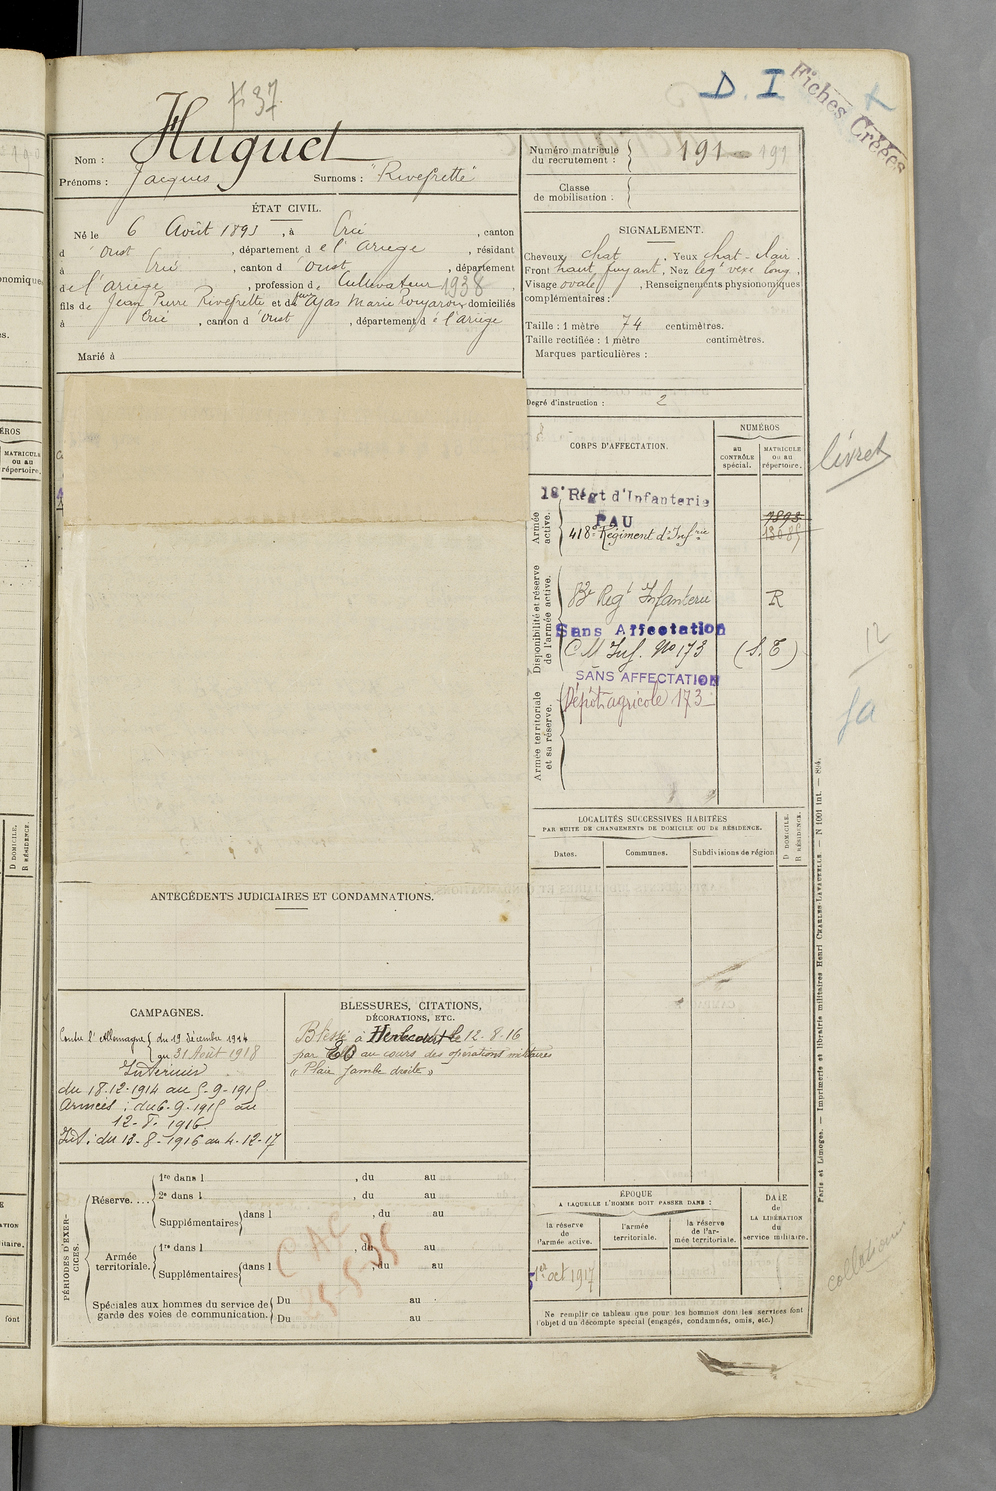 F 37.
D. I
Fiches Créées
Nom : Huguet
Prénoms : Jacques Surnoms : "Riveprette"
Numéro matricule du recrutement : 191 191
Classe de mobilisation :
ÉTAT CIVIL.
Né le 6 Août 1893, à Ercé, canton
d'Oust, département de l'Ariège, résidant
à Ercé, canton d'Oust, département
de l'Ariège, profession de Cultivateur 1938
fils de Jean Pierre Riveprette et de Marie domiciliés
à Ercé, canton d'Oust, département de l'Ariège
Marié à
SIGNALEMENT.
Cheveux chat, Yeux chat-clair.
Front haut, fuyant, Nez long,
Visage ovale, Renseignements physionomiques
complémentaires :
Taille : 1 mètre 74 centimètres.
Taille rectifiée : 1 mètre centimètres.
Marques particulières :
Degré d'instruction : 2
CORPS D'AFFECTATION.
NUMÉROS
au CONTRÔLE spécial.
MATRICULE ou au répertoire.
livret
Armée active.
18e Régt d'Infanterie
PAU
7893
418e Régiment d'Infrie
Disponibilité et réserve de l'armée active.
83e Regt Infanterie R
Sans Affectation
C M Inf. No 173 (S.E)
12
SANS AFFECTATION
Armée territoriale et sa réserve.
Dépôt agricole 173
LOCALITÉS SUCCESSIVES HABITÉES
PAR SUITE DE CHANGEMENTS DE DOMICILE OU DE RÉSIDENCE.
Dates. Communes. Subdivisions de région
D DOMICILE.
R RÉSIDENCE.
ANTÉCÉDENTS JUDICIAIRES ET CONDAMNATIONS.
CAMPAGNES.
Contre l'Allemagne du 19 décembre 1914
au 31 Août 1918
Intérieur
du 18.12.1914 au 5-9-1915
Armées : du 6-9-1915 au
12-8-1916
Int : du 13-8-1916 au 4-12-17
BLESSURES, CITATIONS,
DÉCORATIONS, ETC.
Blessé à Herbécourt le 12-8-16
par EO au cours des opérations militaires
"Plaie jambe droite"
PÉRIODES D'EXERCICES.
Réserve....
1re dans l , du au
2e dans l , du au
Supplémentaires dans l , du au
Armée territoriale.
1re dans l , du au
Supplémentaires dans l , du au
Spéciales aux hommes du service de garde des voies de communication.
Du au
Du au
CAC
25-5-35
ÉPOQUE
A LAQUELLE L'HOMME DOIT PASSER DANS :
DATE de LA LIBÉRATION du service militaire.
la réserve de l'armée active.
l'armée territoriale.
la réserve de l'armée territoriale.
1er oct 1917
Ne remplir ce tableau que pour les hommes dont les services font
l'objet d'un décompte spécial (engagés, condamnés, omis, etc.)
Paris et Limoges. — Imprimerie et librairie militaires Henri CHARLES-LAVAUZELLE. — N 1001 int. — 894.
MATRICULE
ou au
répertoire.
D DOMICILE.
R RÉSIDENCE.
font